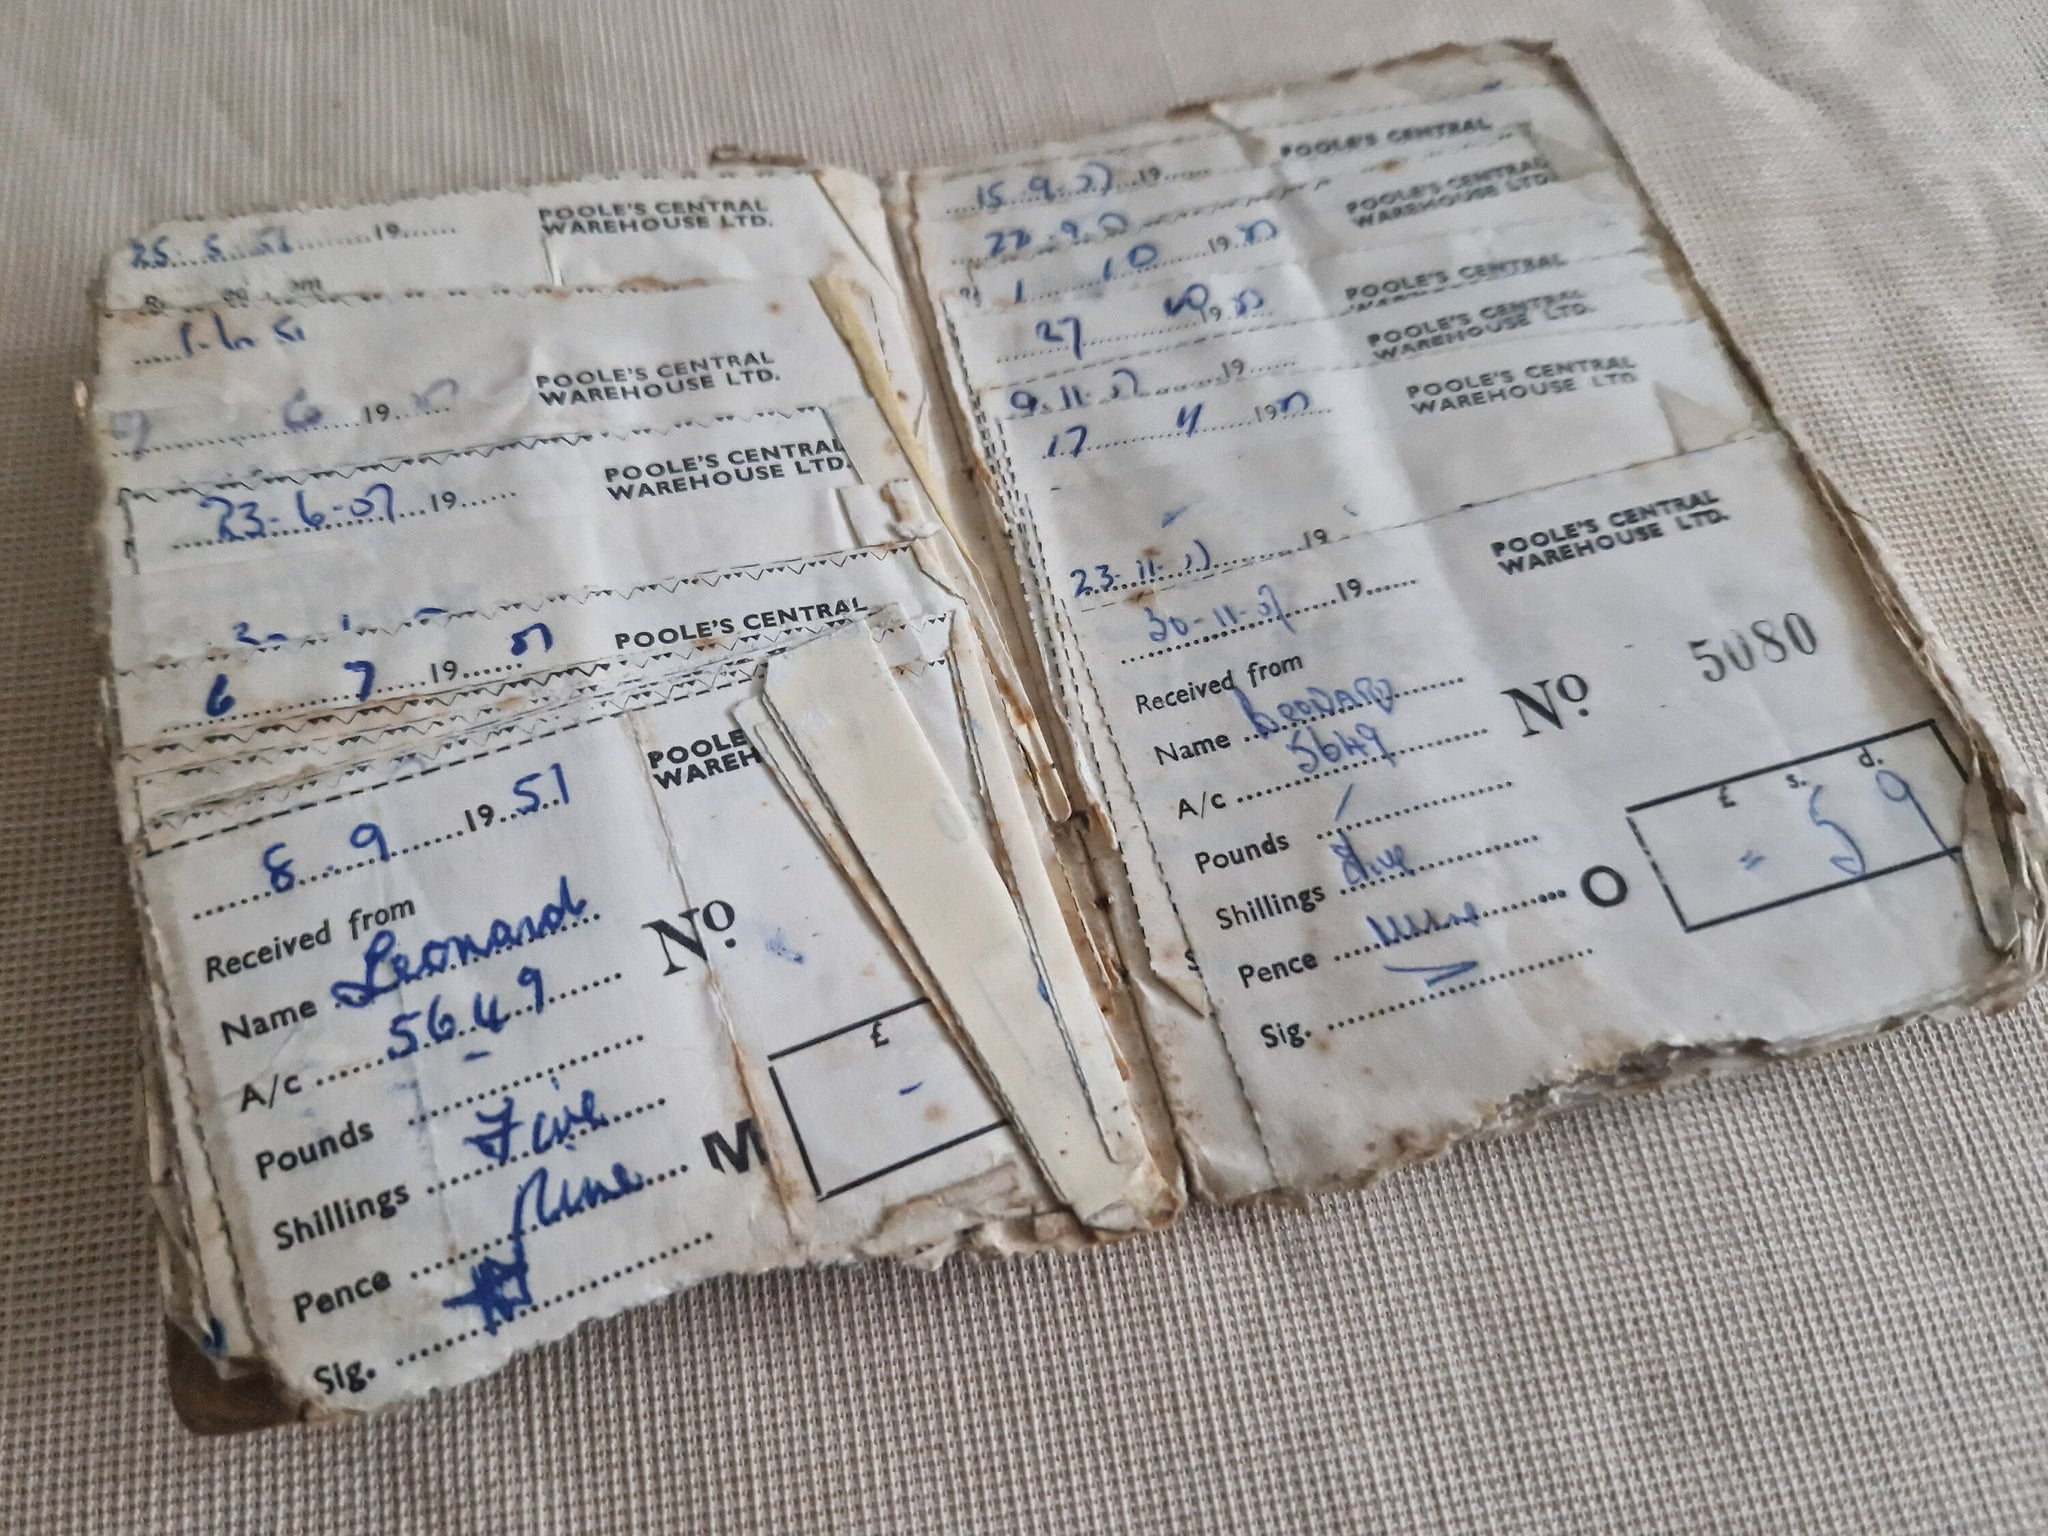 25. 5. 51 19
POOLE'S CENTRAL
WAREHOUSE LTD.
1.6.51
6 19
POOLE'S CENTRAL
WAREHOUSE LTD.
23-6-51 19
POOLE'S CENTRAL
WAREHOUSE LTD.
6 7 19 51
POOLE'S CENTRAL
8.9 19 51
POOLE
WAREH
Received from
Name Leonard
A/c 5649
No.
Pounds -
Shillings Five
Pence Nine
M
£
-
Sig.
15.9.51 19
POOLE'S CENTRAL
22.9.51
POOLE'S CENTRAL
WAREHOUSE LTD.
1 10 19 51
POOLE'S CENTRAL
27 10 19 51
POOLE'S CENTRAL
WAREHOUSE LTD.
9.11.51 19
17 11 19 51
POOLE'S CENTRAL
WAREHOUSE LTD.
23.11.51 19
30-11-51 19
POOLE'S CENTRAL
WAREHOUSE LTD.
Received from
Name Leonard
A/c 5649
No. 5080
Pounds /
Shillings five
Pence nine
O
£ s. d.
= 5 9
Sig.